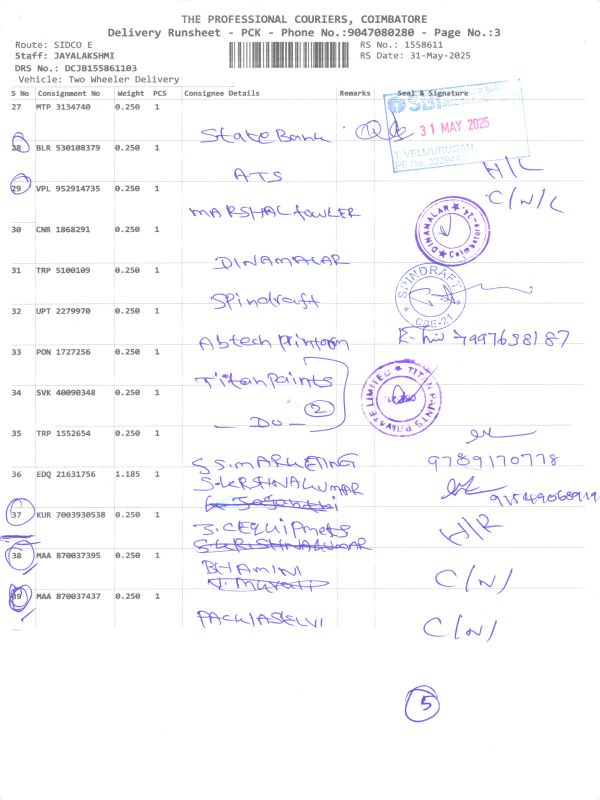 THE PROFESSIONAL COURIERS, COIMBATORE
Delivery Runsheet - PCK - Phone No.:9047080280 - Page No.:3
Route: SIDCO E
Staff: JAYALAKSHMI
DRS No.: DCJB155861103
Vehicle: Two Wheeler Delivery
RS No.: 1558611
RS Date: 31-May-2025
S No Consignment No Weight PCS Consignee Details Remarks Seal & Signature
27 MTP 3134740 0.250 1 State Bank
SBI
31 MAY 2025
T. VELMURUGAN
PF No. 3239445
28 BLR 530108379 0.250 1 ATS H/L
29 VPL 952914735 0.250 1 MARSHAL FOWLER C/N/L
30 CNR 1868291 0.250 1 DINAMALAR
DINAMALAR Coimbatore
31 TRP 5100109 0.250 1 Spindraft
SPINDRAFT CBE-21
32 UPT 2279970 0.250 1 Abtech 7997638187
33 PON 1727256 0.250 1 Titan Paints
TITAN PAINTS PRIVATE LIMITED
34 SVK 40090348 0.250 1 - DO - 2
35 TRP 1552654 0.250 1 S.S. MARKETING 9789170778
36 EDQ 21631756 1.185 1 S. KRISHNAKUMAR
37 KUR 7003930538 0.250 1 S.C EQUIPMETS H/R
S. KRISHNAKUMAR
38 MAA 870037395 0.250 1 BHAMINI C/N/
V. Murali
39 MAA 870037437 0.250 1 PACKIASELVI C/N/
5